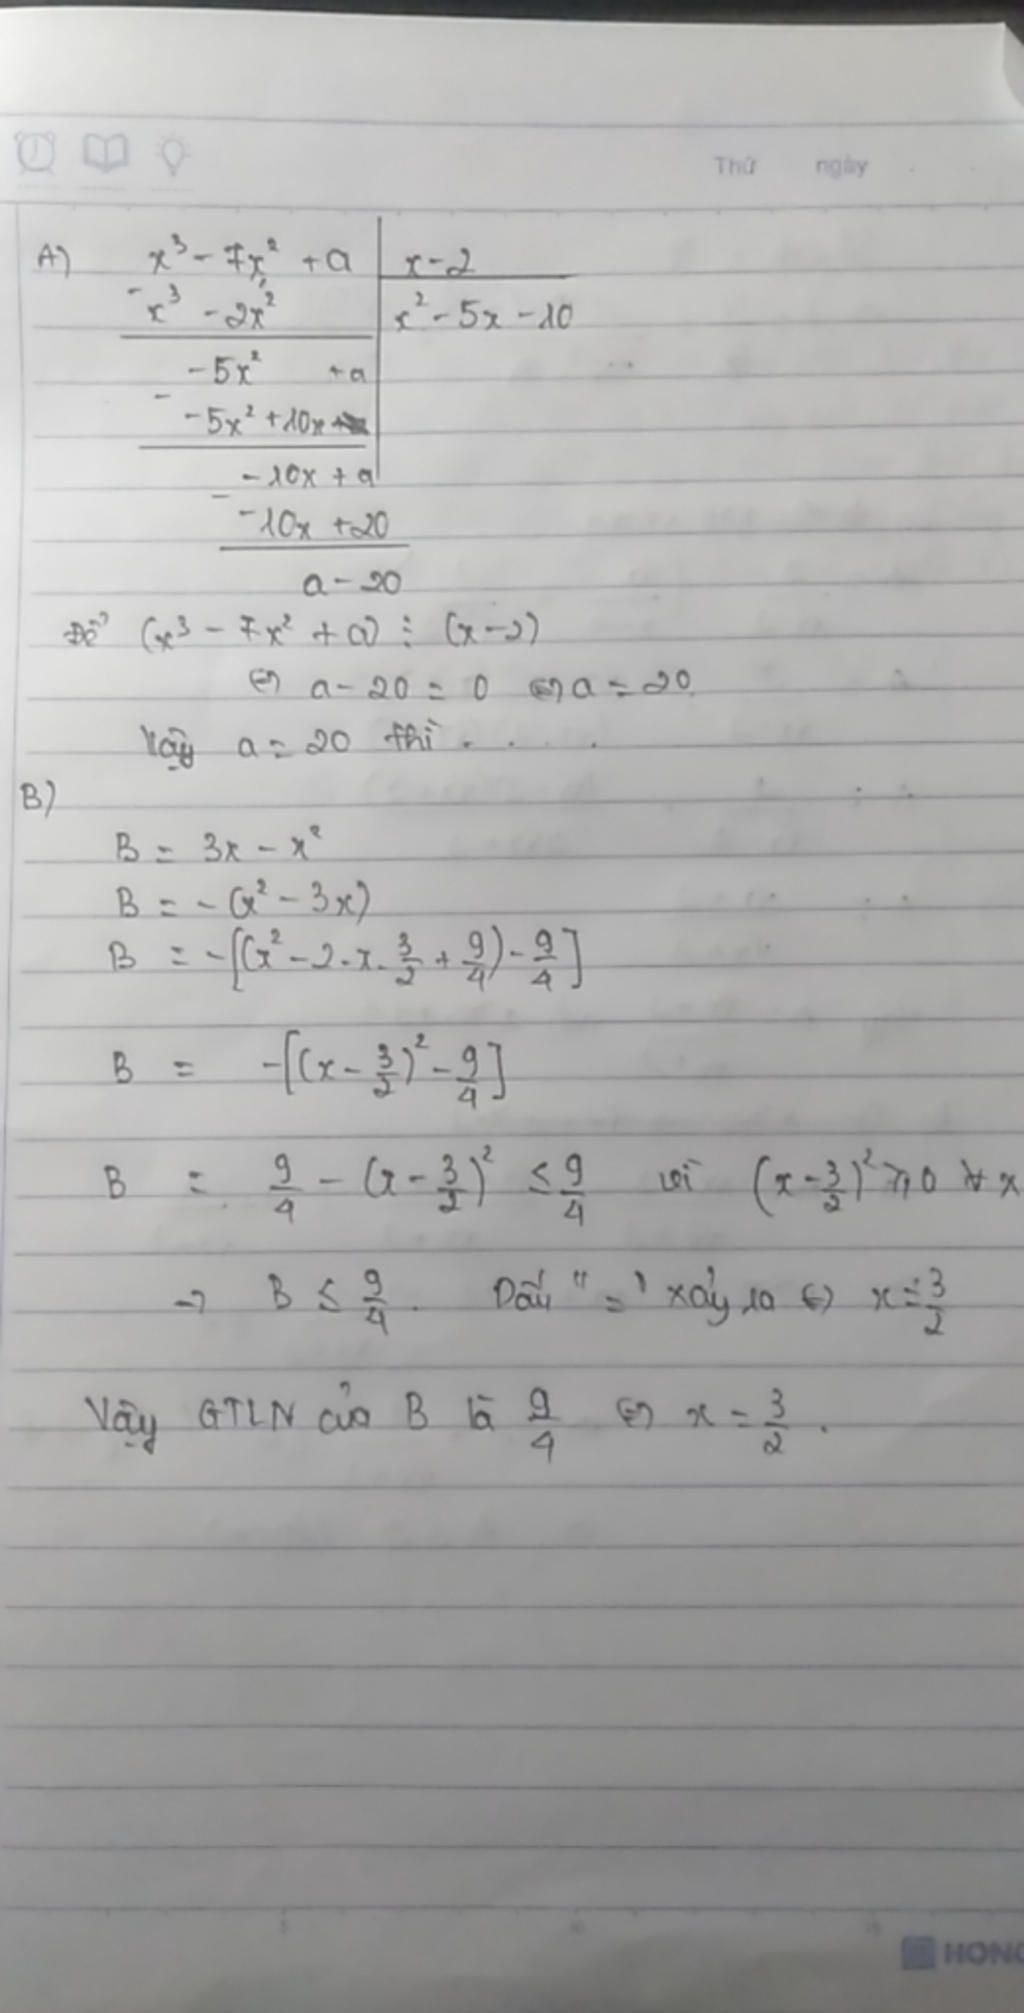 Thứ ngày
A) x³ - 7x² + a | x - 2
- x³ - 2x² | x² - 5x - 10
-5x² + a
- -5x² + 10x
-10x + a
- -10x + 20
a - 20
Để (x³ - 7x² + a) ⋮ (x - 2)
⇔ a - 20 = 0 ⇔ a = 20
Vậy a = 20 thì . . . .
B)
B = 3x - x²
B = -(x² - 3x)
B = -[(x² - 2.x.3/2 + 9/4) - 9/4]
B = -[(x - 3/2)² - 9/4]
B = 9/4 - (x - 3/2)² ≤ 9/4 vì (x - 3/2)² ≥ 0 ∀ x
→ B ≤ 9/4. Dấu "=" xảy ra ⇔ x = 3/2
Vậy GTLN của B là 9/4 ⇔ x = 3/2.
5 10 15
HONG